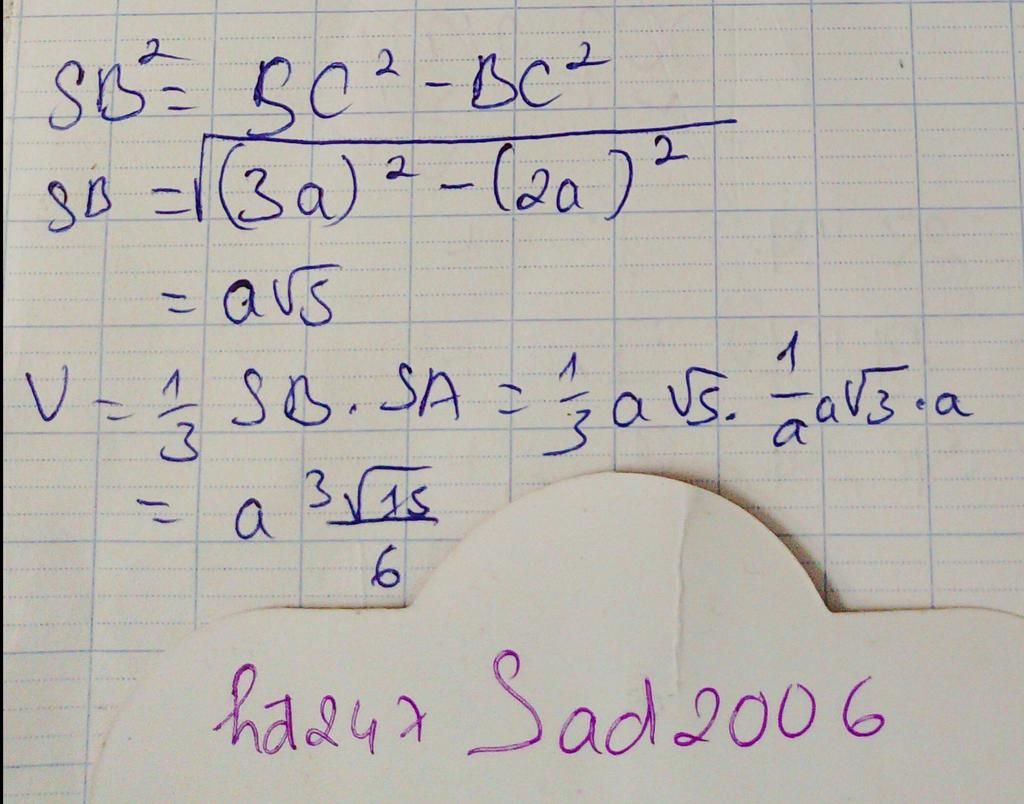 SB² = SC² - BC²
SB = √((3a)² - (2a)²)
= a√5
V = 1/3 SB. SA = 1/3 a√5. 1/a a√3.a
= a ³√15/6
hd247 Sad2006